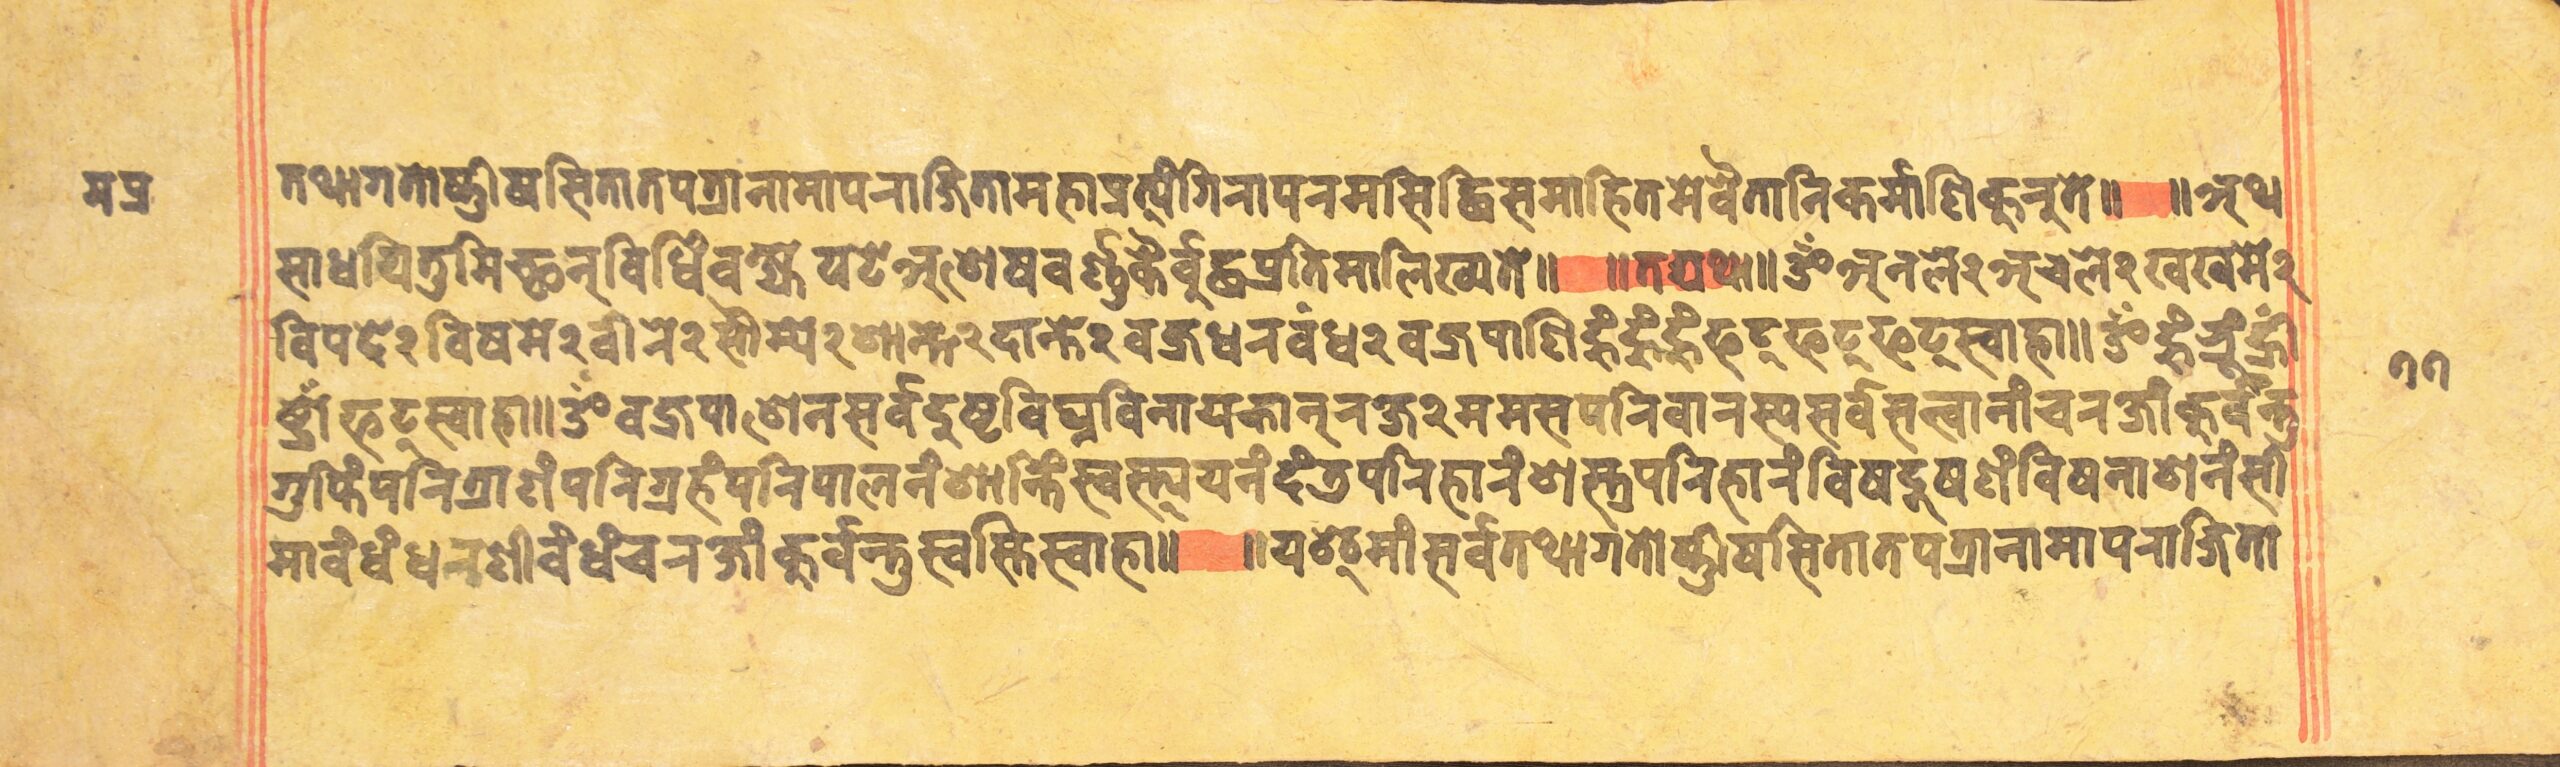 मप्र
तथागतोष्णीषसितातपत्रानामापराजितामहाप्रत्यंगिरापरमसिद्धिसमाहितमेवैतानिकर्माणिकुरुते॥ ॥अथ
साधयितुमिच्छन्विधिंवक्ष्येपटेअशेषवर्ण्णकैर्वुद्धप्रतिमालिख्यते॥ ॥तद्यथा॥ॐअनले२अचले२खखमे२
विपदे२विषमे२वीरे२सौम्ये२शान्ते२दान्ते२वज्रधरवंध२वज्रपाणिहूंहूंहूंफट्फट्फट्स्वाहा॥ॐहूंत्रूंह्रीं
फट्स्वाहा॥ॐवज्रपाशेनसर्वदुष्टविघ्नविनायकान्रक्ष२ममसपरिवारस्यसर्वसत्वानांचरक्षांकुर्वन्तु
गुप्तिंपरित्राणंपरिग्रहंपरिपालनंशान्तिंस्वस्त्ययनंदंत्रपरिहारंशस्त्रपरिहारंविषदूषणंविषनाशनंसी
मावंधंधरणीवंधंचरक्षांकुर्वन्तुस्वस्तिस्वाहा॥ ॥यइमांसर्वतथागतोष्णीषसितातपत्रानामापराजिता
११